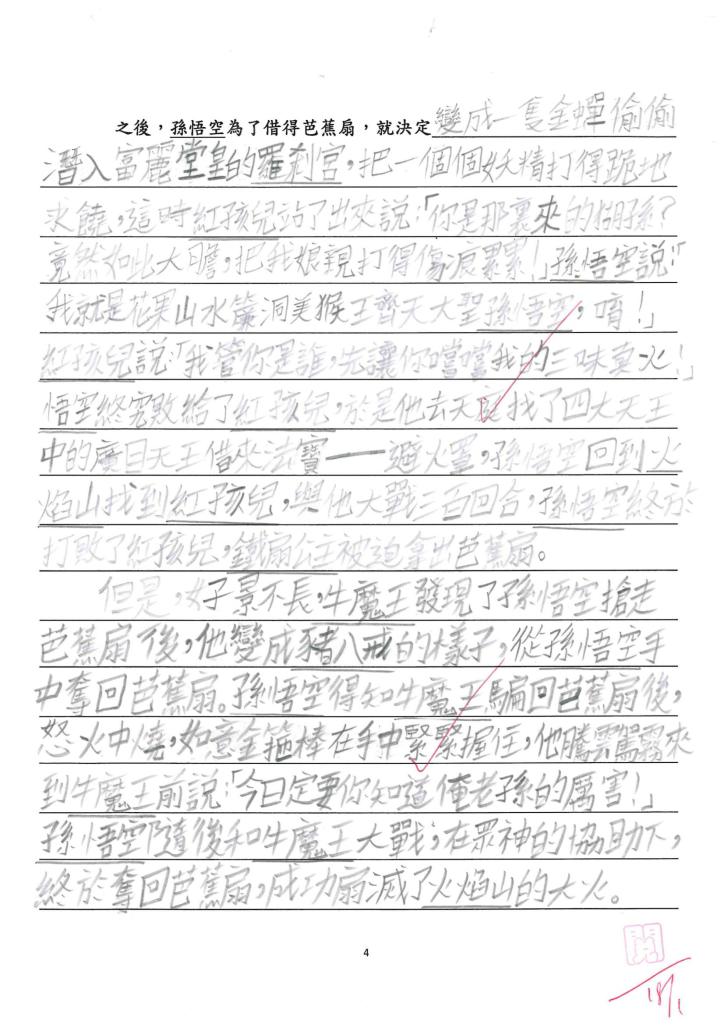 之後，孫悟空為了借得芭蕉扇，就決定變成一隻金蟬偷偷
潛入富麗堂皇的羅剎宮，把一個個妖精打得跪地
求饒，這時紅孩兒站了出來說：「你是那裏來的猢猻？
竟然如此大膽，把我娘親打得傷痕累累！」孫悟空說：「
我就是花果山水簾洞美猴王齊天大聖孫悟空，唷！」
紅孩兒說：「我管你是誰，先讓你嚐嚐我的三味真火！」
悟空終究敗給了紅孩兒，於是他去天庭找了四大天王
中的廣目天王借來法寶——避火罩，孫悟空回到火
焰山找到紅孩兒，與他大戰三百回合，孫悟空終於
打敗了紅孩兒，鐵扇公主被迫拿出芭蕉扇。
但是，好景不長，牛魔王發現了孫悟空搶走
芭蕉扇後，他變成豬八戒的樣子，從孫悟空手
中奪回芭蕉扇。孫悟空得知牛魔王騙回芭蕉扇後，
怒火中燒，如意金箍棒在手中緊緊握住，他騰雲駕霧來
到牛魔王前說：「今日定要你知道俺老孫的厲害！」
孫悟空隨後和牛魔王大戰，在眾神的協助下，
終於奪回芭蕉扇，成功扇滅了火焰山的大火。
4
閱
18/1